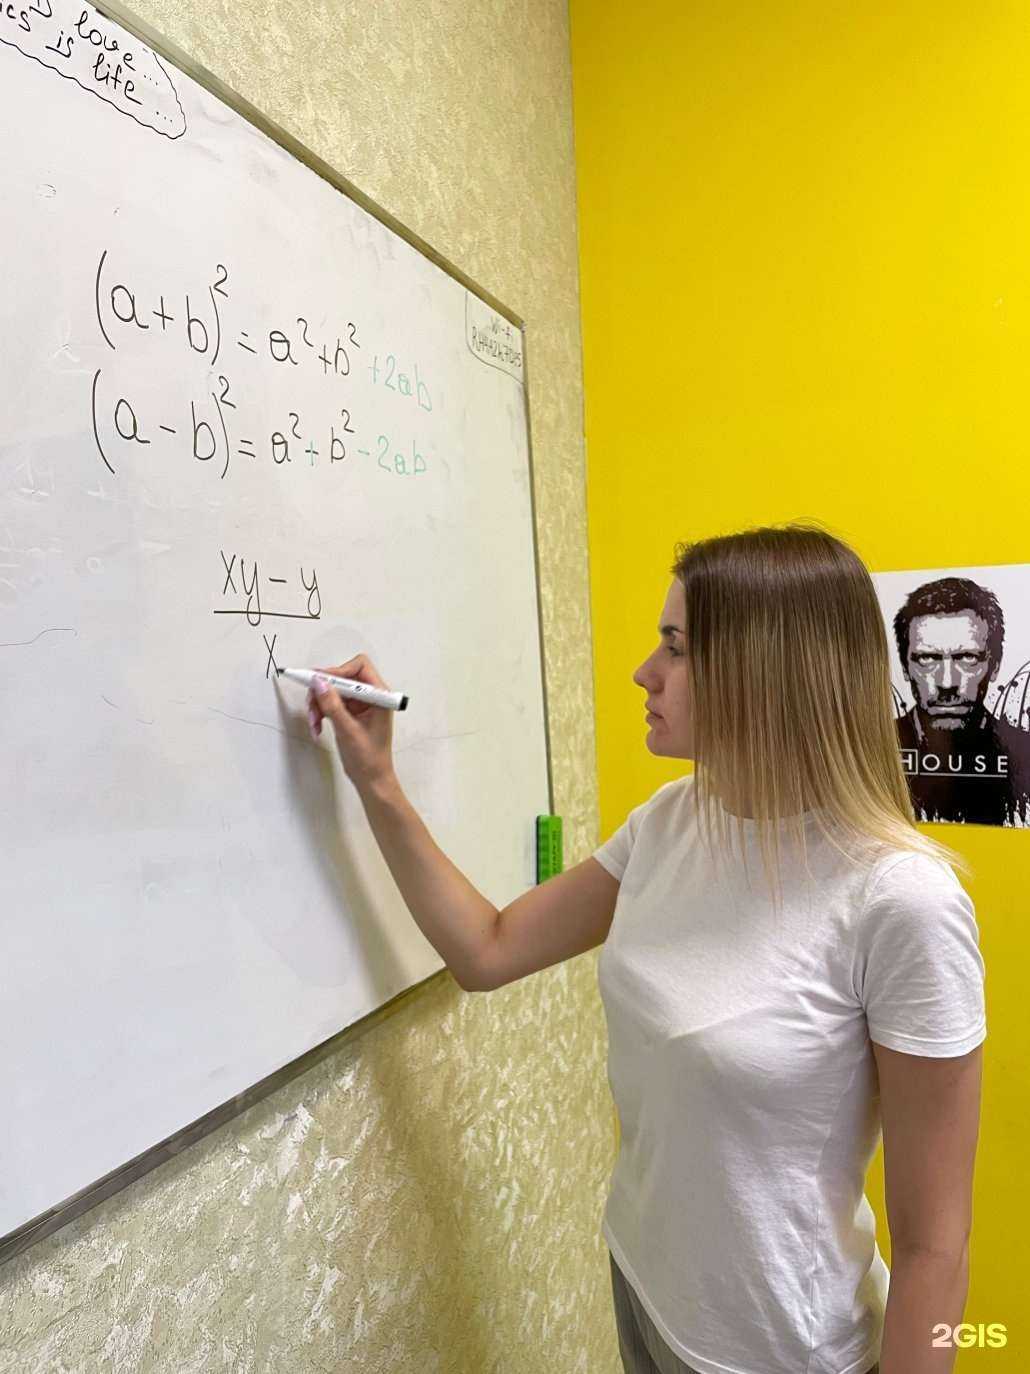 is love...
is life...
(a+b)² = a²+b²+2ab
(a-b)² = a²+b²-2ab
xy-y
x
HOUSE
2GIS